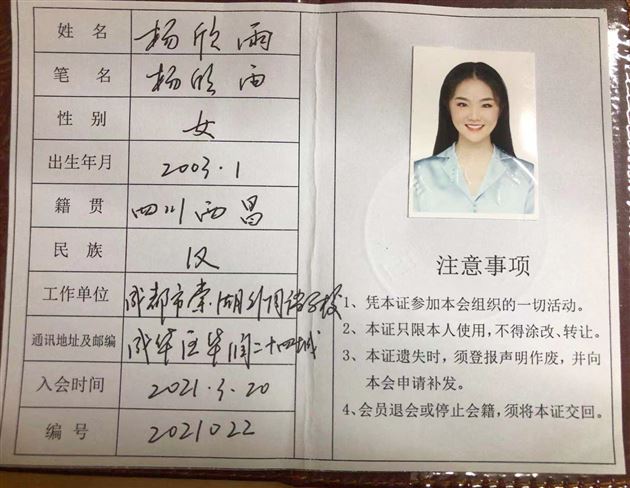 姓 名 杨欣雨
笔 名 杨欣雨
性 别 女
出生年月 2003.1
籍 贯 四川西昌
民 族 汉
工作单位 成都市棠湖外国语学校
通讯地址及邮编 成华区华润二十四城
入会时间 2021.3.20
编 号 2021022
注意事项
1、凭本证参加本会组织的一切活动。
2、本证只限本人使用，不得涂改、转让。
3、本证遗失时，须登报声明作废，并向
本会申请补发。
4、会员退会或停止会籍，须将本证交回。